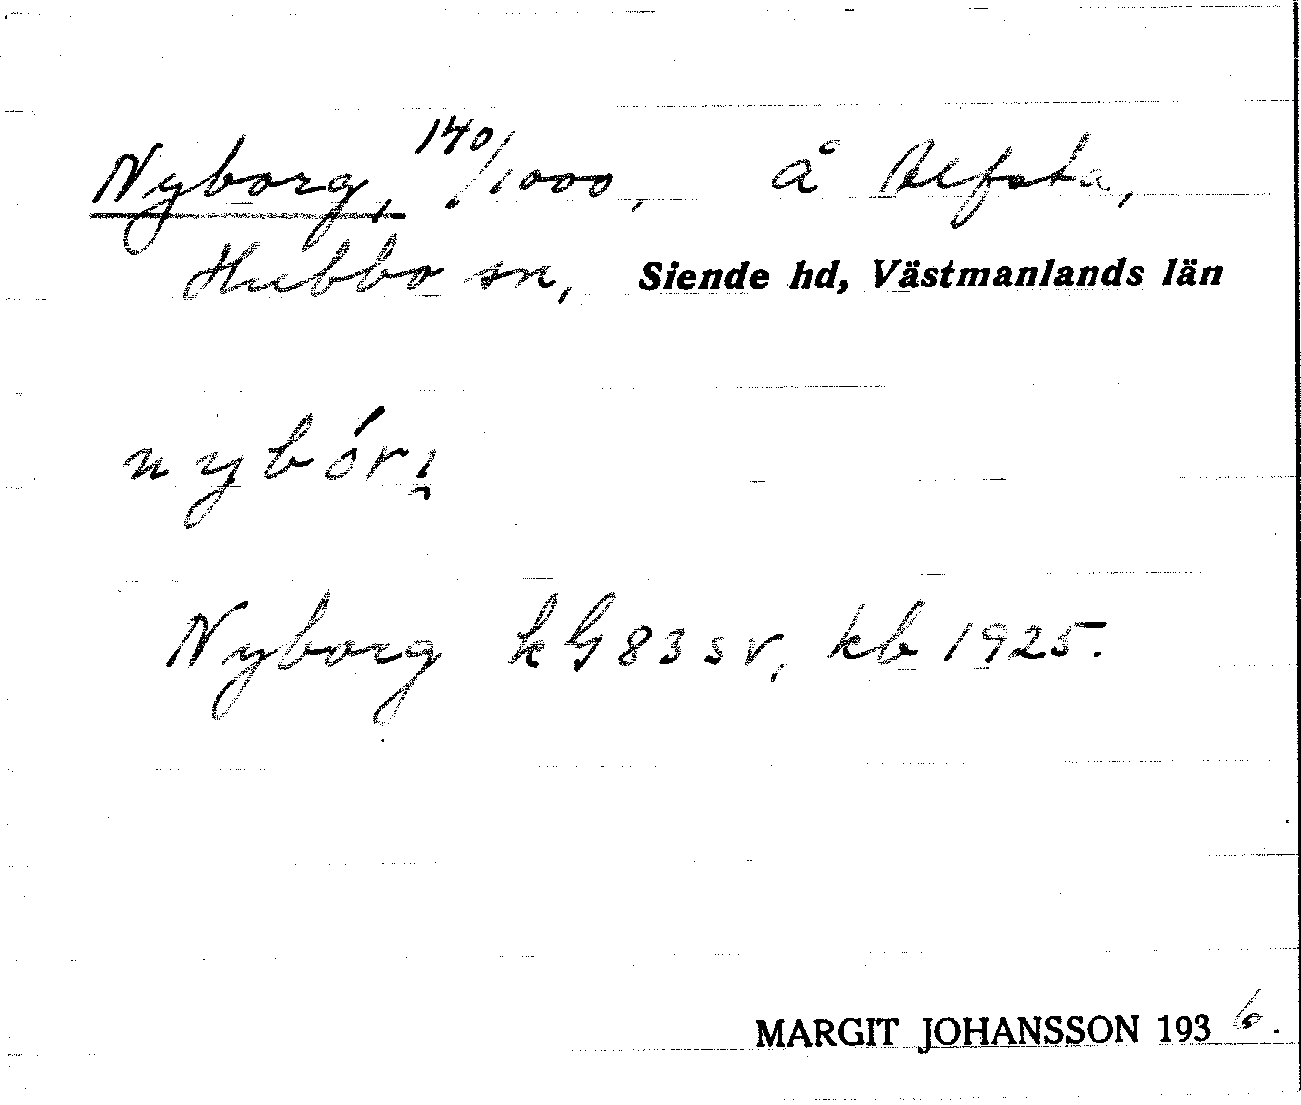 Nyborg, 140/1000, å Alfsta,
Hubbo sn, Siende hd, Västmanlands län
nybórj̯
Nyborg kG83sv, kb 1925.
MARGIT JOHANSSON 1936.